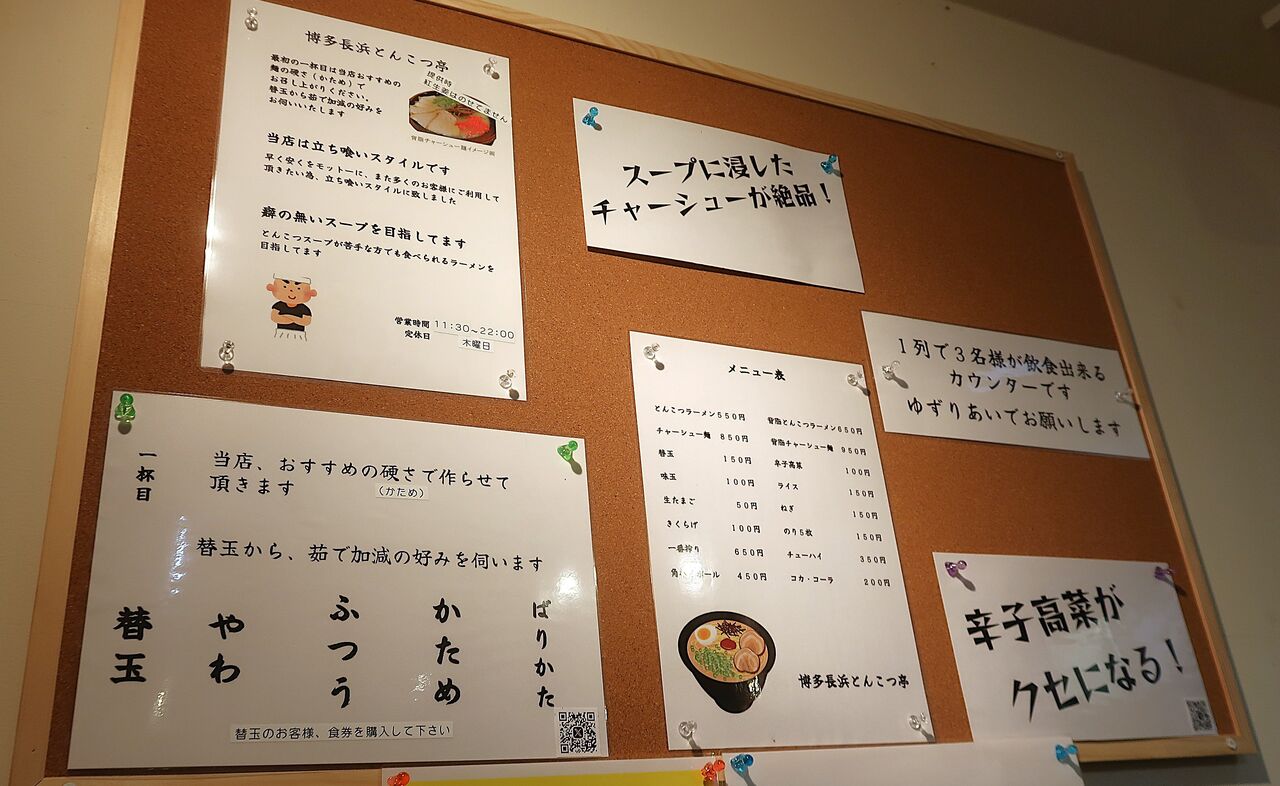 博多長浜とんこつ亭
最初の一杯目は当店おすすめの
麺の硬さ(かため)で
お召し上がりください。
替玉から茹で加減の好みを
お伺いいたします
提供時
紅生姜はのせてません
背脂チャーシュー麺イメージ画
当店は立ち喰いスタイルです
早く安くをモットーに、また多くのお客様にご利用して
頂きたい為、立ち喰いスタイルに致しました
癖の無いスープを目指してます
とんこつスープが苦手な方でも食べられるラーメンを
目指してます
営業時間 11:30~22:00
定休日 木曜日
スープに浸した
チャーシューが絶品!
1列で3名様が飲食出来る
カウンターです
ゆずりあいでお願いします
一杯目
当店、おすすめの硬さで作らせて
頂きます
(かため)
替玉から、茹で加減の好みを伺います
替玉
やわ
ふつう
かため
ばりかた
替玉のお客様、食券を購入して下さい
メニュー表
とんこつラーメン550円
チャーシュー麺 850円
替玉 150円
味玉 100円
生たまご 50円
きくらげ 100円
一番搾り 650円
角ハイボール 450円
背脂とんこつラーメン650円
背脂チャーシュー麺 950円
辛子高菜 100円
ライス 150円
ねぎ 150円
のり5枚 150円
チューハイ 350円
コカ・コーラ 200円
博多長浜とんこつ亭
辛子高菜が
クセになる!